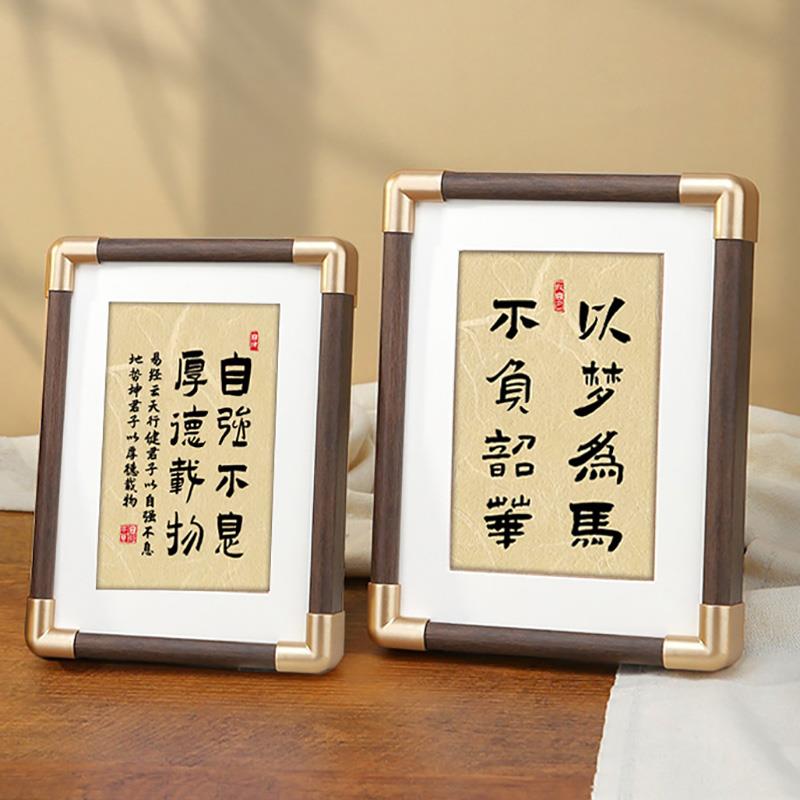 自強不息
厚德載物
易經云天行健君子以自强不息
地势坤君子以厚德載物
以梦為馬
不負韶華